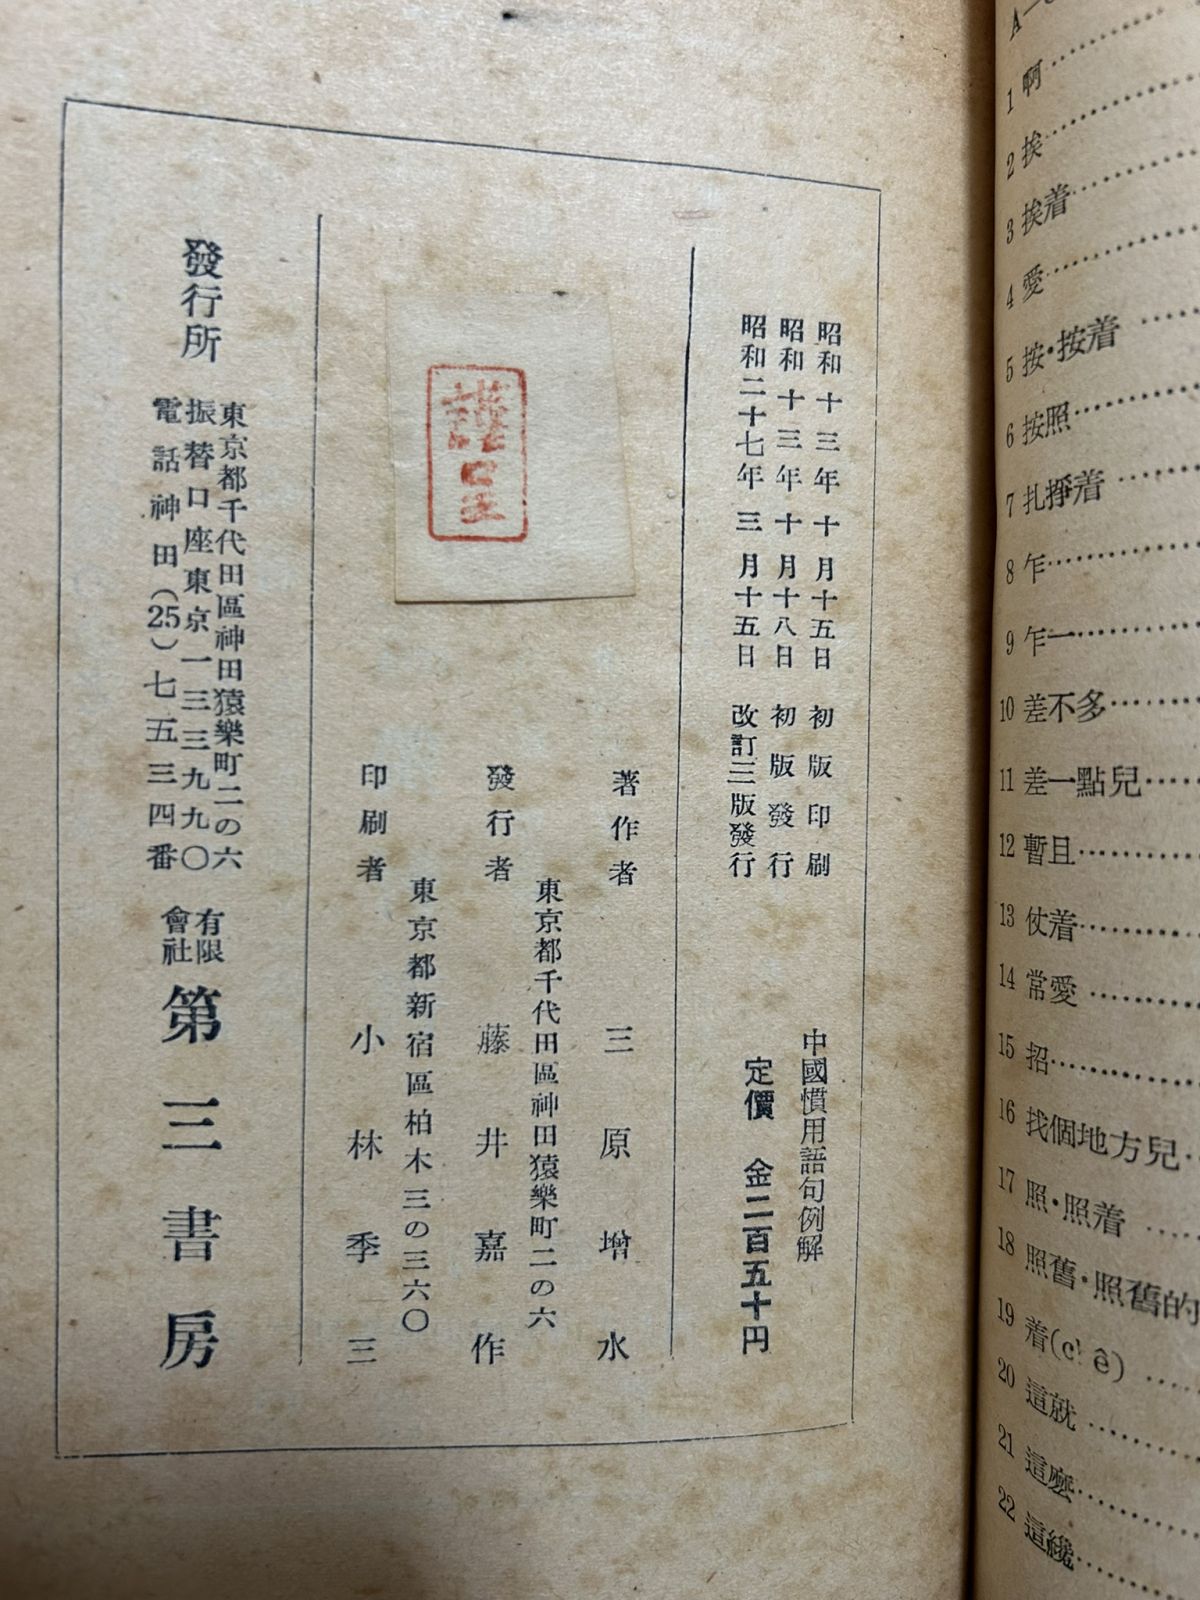 昭和十三年十月十五日 初版印刷
昭和十三年十月十八日 初版發行
昭和二十七年三月十五日 改訂三版發行
中國慣用語句例解
定價 金二百五十円
著作者 三原增水
東京都千代田區神田猿樂町二の六
發行者 藤井嘉作
東京都新宿區柏木三の三六〇
印刷者 小林季三
發行所
東京都千代田區神田猿樂町二の六
振替口座東京一三三九九〇
電話神田(25)七五三四番
有限會社 第三書房
1 啊
2 挨
3 挨着
4 愛
5 按·按着
6 按照
7 扎掙着
8 乍
9 乍一
10 差不多
11 差一點兒
12 暫且
13 仗着
14 常愛
15 招
16 找個地方兒
17 照·照着
18 照舊·照舊的
19 着
20 這就
21 這麼
22 這纔